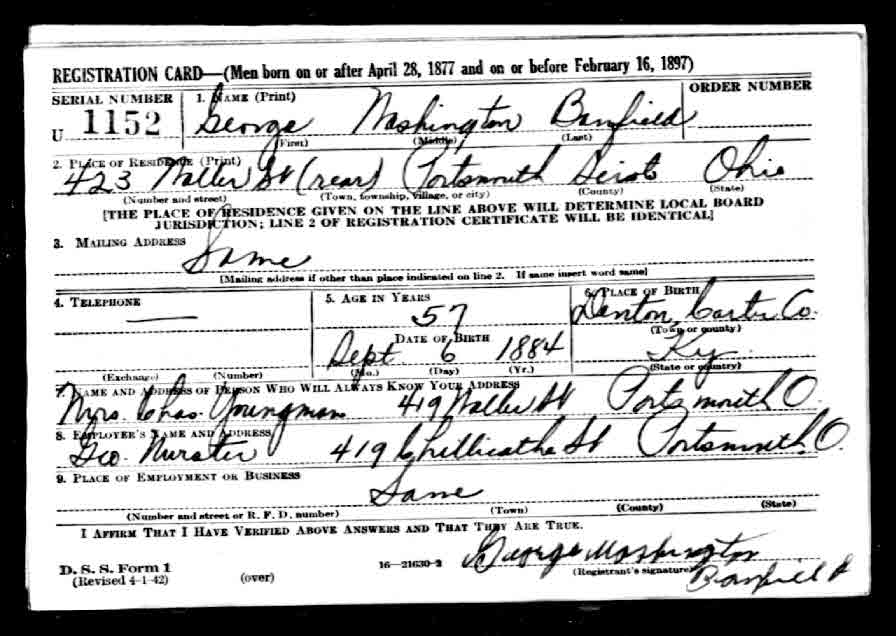 REGISTRATION CARD—(Men born on or after April 28, 1877 and on or before February 16, 1897)
SERIAL NUMBER 1. NAME (Print) ORDER NUMBER
U 1152 George Washington Banfield
(First) (Middle) (Last)
2. PLACE OF RESIDENCE (Print)
423 Waller St (rear) Portsmouth Scioto Ohio
(Number and street) (Town, township, village, or city) (County) (State)
[THE PLACE OF RESIDENCE GIVEN ON THE LINE ABOVE WILL DETERMINE LOCAL BOARD
JURISDICTION; LINE 2 OF REGISTRATION CERTIFICATE WILL BE IDENTICAL]
3. MAILING ADDRESS
Same
[Mailing address if other than place indicated on line 2. If same insert word same]
4. TELEPHONE 5. AGE IN YEARS 6. PLACE OF BIRTH
57 Denton, Carter Co.
(Town or county)
DATE OF BIRTH
Sept 6 1884 Ky.
(Exchange) (Number) (Mo.) (Day) (Yr.) (State or country)
7. NAME AND ADDRESS OF PERSON WHO WILL ALWAYS KNOW YOUR ADDRESS
Mrs. Chas. Youngman 419 Waller St Portsmouth O.
8. EMPLOYER'S NAME AND ADDRESS
Geo. 419 Chillicothe St Portsmouth, O.
9. PLACE OF EMPLOYMENT OR BUSINESS
Same
(Number and street or R. F. D. number) (Town) (County) (State)
I AFFIRM THAT I HAVE VERIFIED ABOVE ANSWERS AND THAT THEY ARE TRUE.
George Washington
D. S. S. Form 1 16—21630-2 (Registrant's signature)
(Revised 4-1-42) (over) Banfield